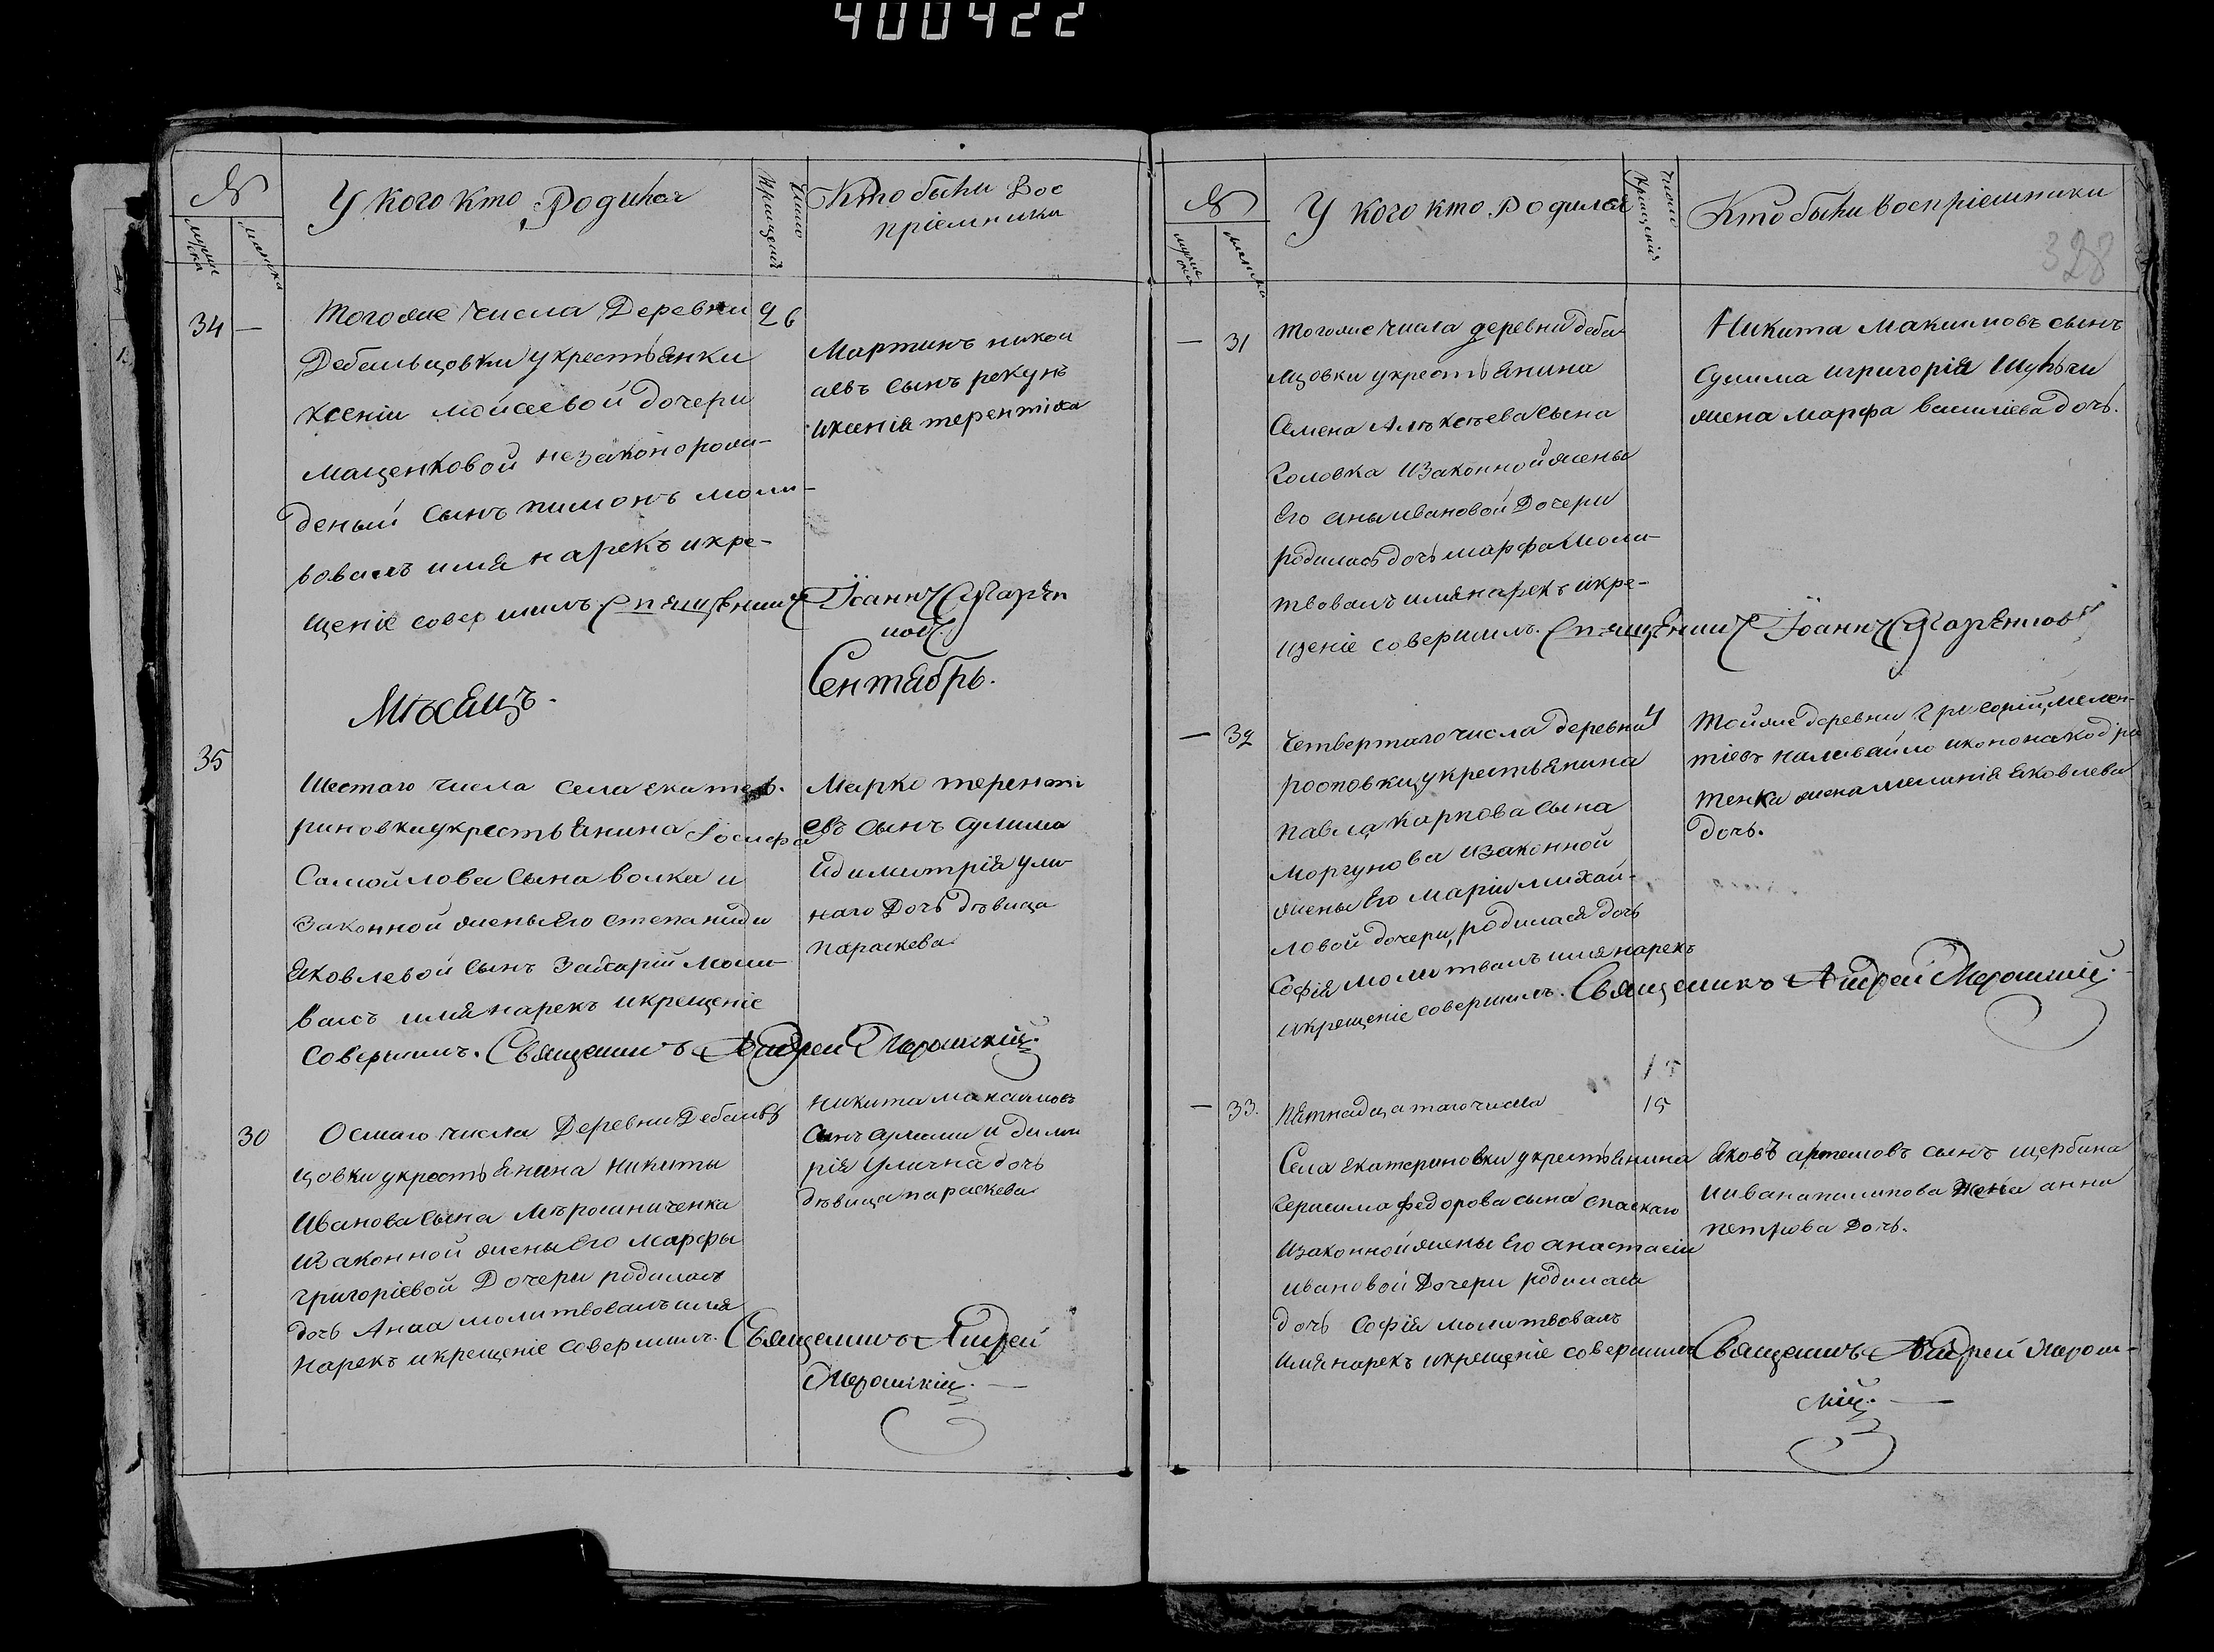 400422
№
У кого кто родился
Число
Крещенія
Кто были Вос
пріемники
34 —
Тогоже числа Деревни
26
Дебальцовки укрестьянки
Ксеніи мойсеевой дочери
Мащенковой незаконорож-
деный сынъ пимонъ моли-
вовалъ имя нарекъ икре-
щеніе совершилъ Священникъ Іоаннъ
Мартинъ никол
аевъ сынъ рекунъ
иксенія
Мѣсяцъ.
Сентябрь.
35
Шестаго числа села екате
риновки укрестьянина Іосифа
Самойлова сына волка и
Законной жены его степаниды
Яковлевой сынъ Захарій моли-
валъ имя нарекъ икрещеніе
Совершилъ. Священникъ Андрей
Марко теренті
евъ сынъ сулима
идимитрія ули-
наго дочь дѣвица
параскева
30
Осмаго числа Деревни Дебаль
цовки укрестьянина никиты
Иванова сына Мѣрошниченка
Изаконной жены его марфы
григоріевой Дочери родилась
дочь Анна молитвовалъ имя
нарекъ икрещеніе совершилъ. Священникъ Андрей
Никита максимовъ
сынъ сулима и дими
рія улична дочь
дѣвица параскева
№
У кого кто родился
Число
Крещенія
Кто были воспріемники
328
— 31
Тогоже числа деревни деба-
лцовки укрестьянина
Семена Алѣксѣева сына
Головка изаконной жены
Его аны ивановой Дочери
родилась дочь марфа моли-
твовалъ имя нарекъ икре-
щеніе совершилъ. Священникъ Іоаннъ
Никита Максимовъ сынъ
Сулима игригорія
жена марфа василіева дочь.
— 32
Четвертаго числа деревни
4
укрестьянина
павла карпова сына
Моргунова изаконной
жены его маріи михай-
ловой дочери, родилася дочь
Софія молитвалъ имя нарекъ
икрещеніе совершилъ. Священникъ Андрей
Тойже деревни григорій мелен-
тіевъ наливайло
тенка жена меланія яковлева
дочь.
15
— 33.
пятнадцатаго числа
15
Села екатериновки укрестьянина
герасима федорова сына спаскаго
изаконной жены его анастасіи
ивановой Дочери родилась
дочь Софія молитвовалъ
имя нарекъ икрещеніе совершилъ Священникъ Андрей
Яковъ артемовъ сынъ щербина
иивана филипова жена анна
петрова дочь.